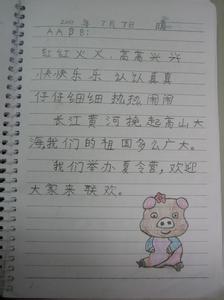 年 7月 7日 晴
AABB:
红红火火、高高兴兴
快快乐乐 认认真真
仔仔细细 热热闹闹
长江黄河挽起高山大
海,我们的祖国多么广大。
我们举办夏令营,欢迎
大家来联欢。